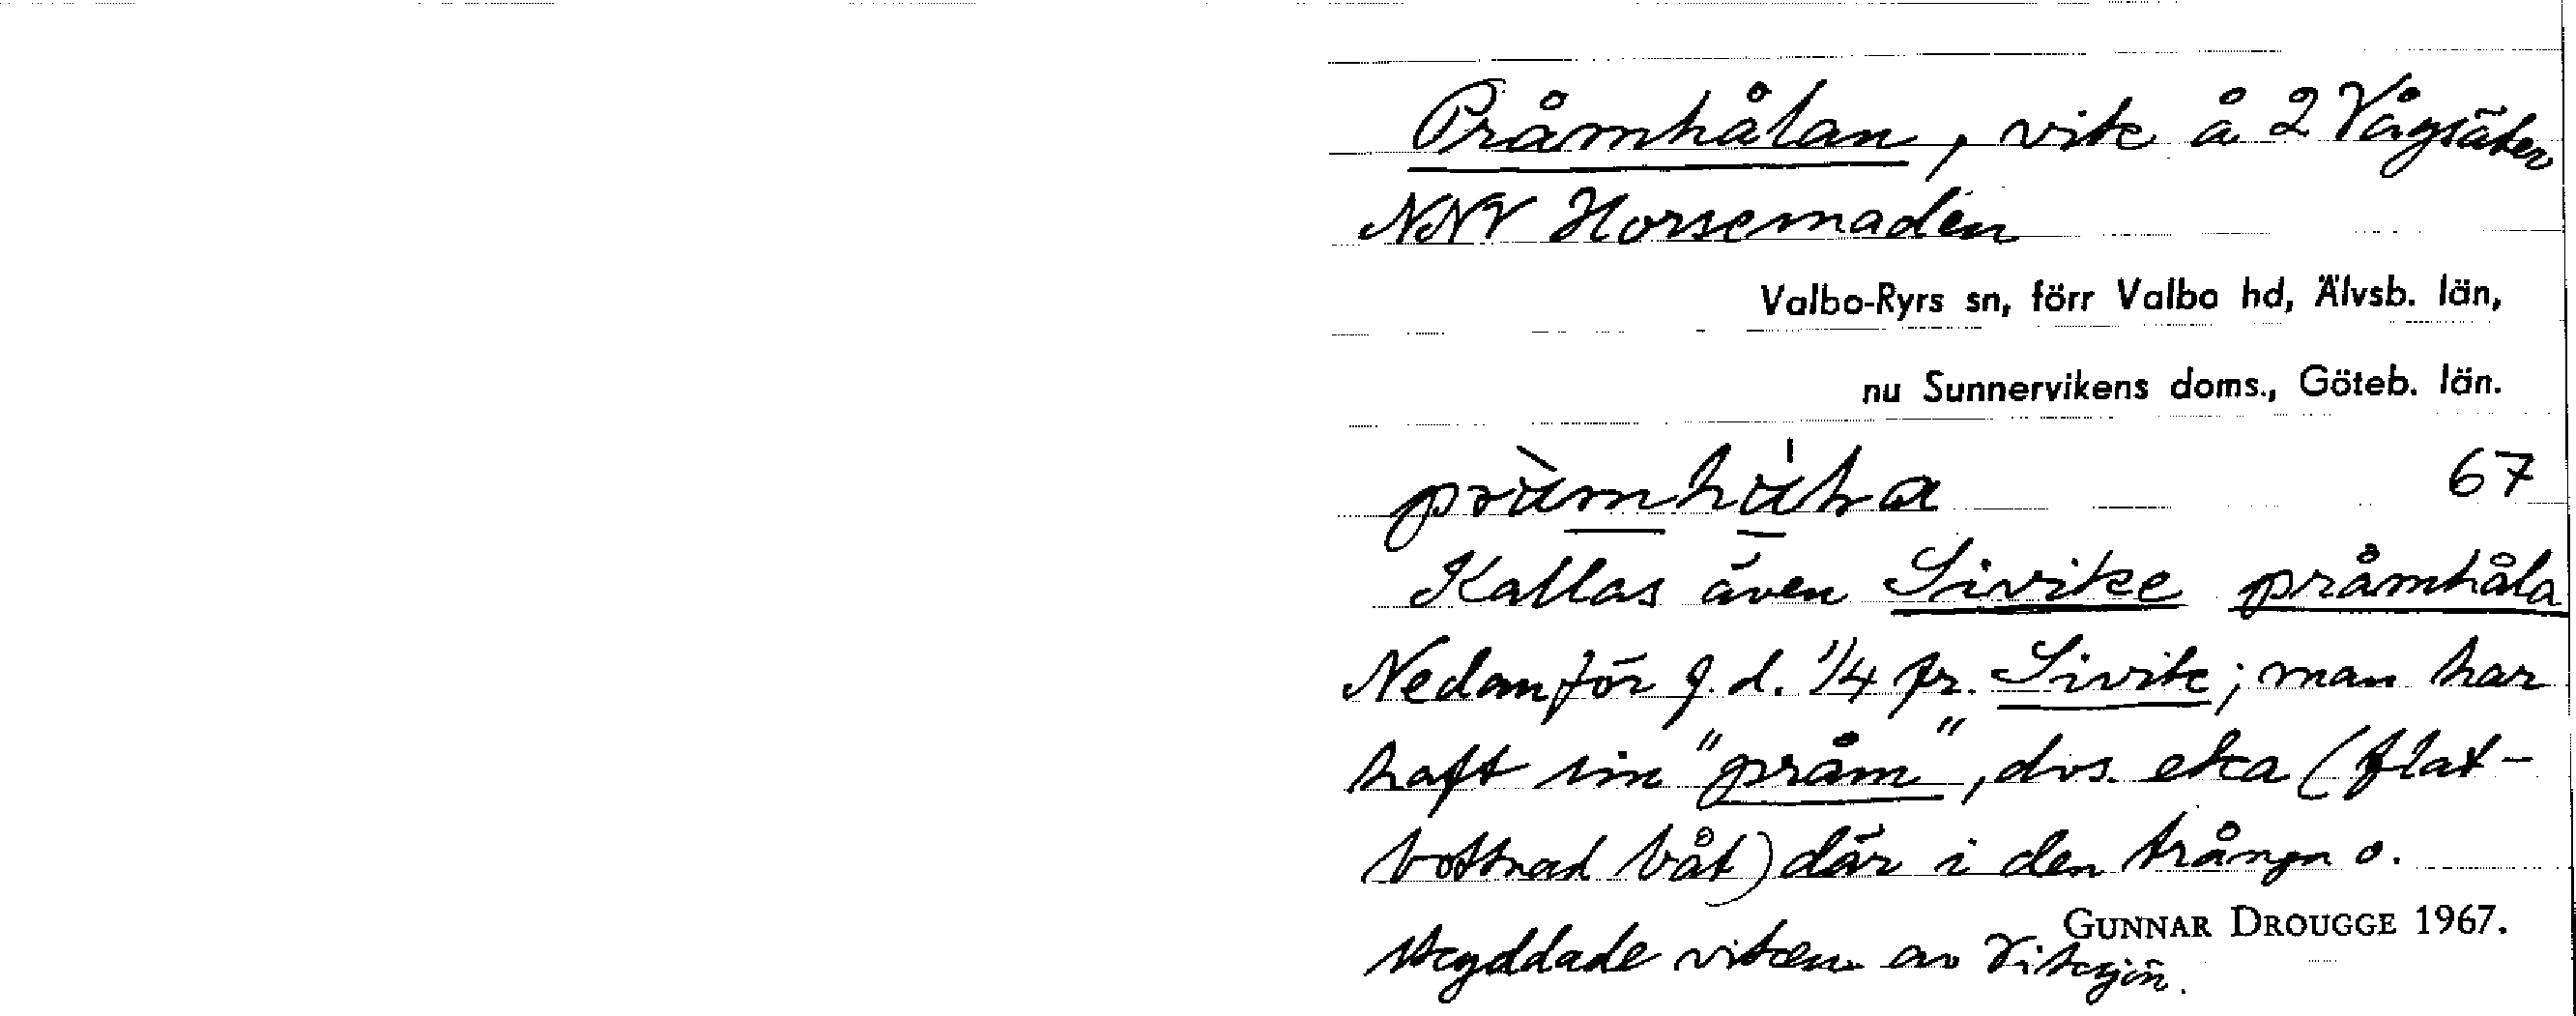 Pråmhålan, vik å 2 Vågsäter
NNV Horsemaden
Valbo-Ryrs sn, förr Valbo hd, Älvsb. län,
nu Sunnervikens doms., Göteb. län.
67
Kallas även Sivike pråmhåla
Nedanför g.d. 1/4 fr. Sivik; man har
haft sin "pråm", dvs. eka (flat-
bottnad båt) där i den trånga o.
skyddade viken av Viksjön.
GUNNAR DROUGGE 1967.